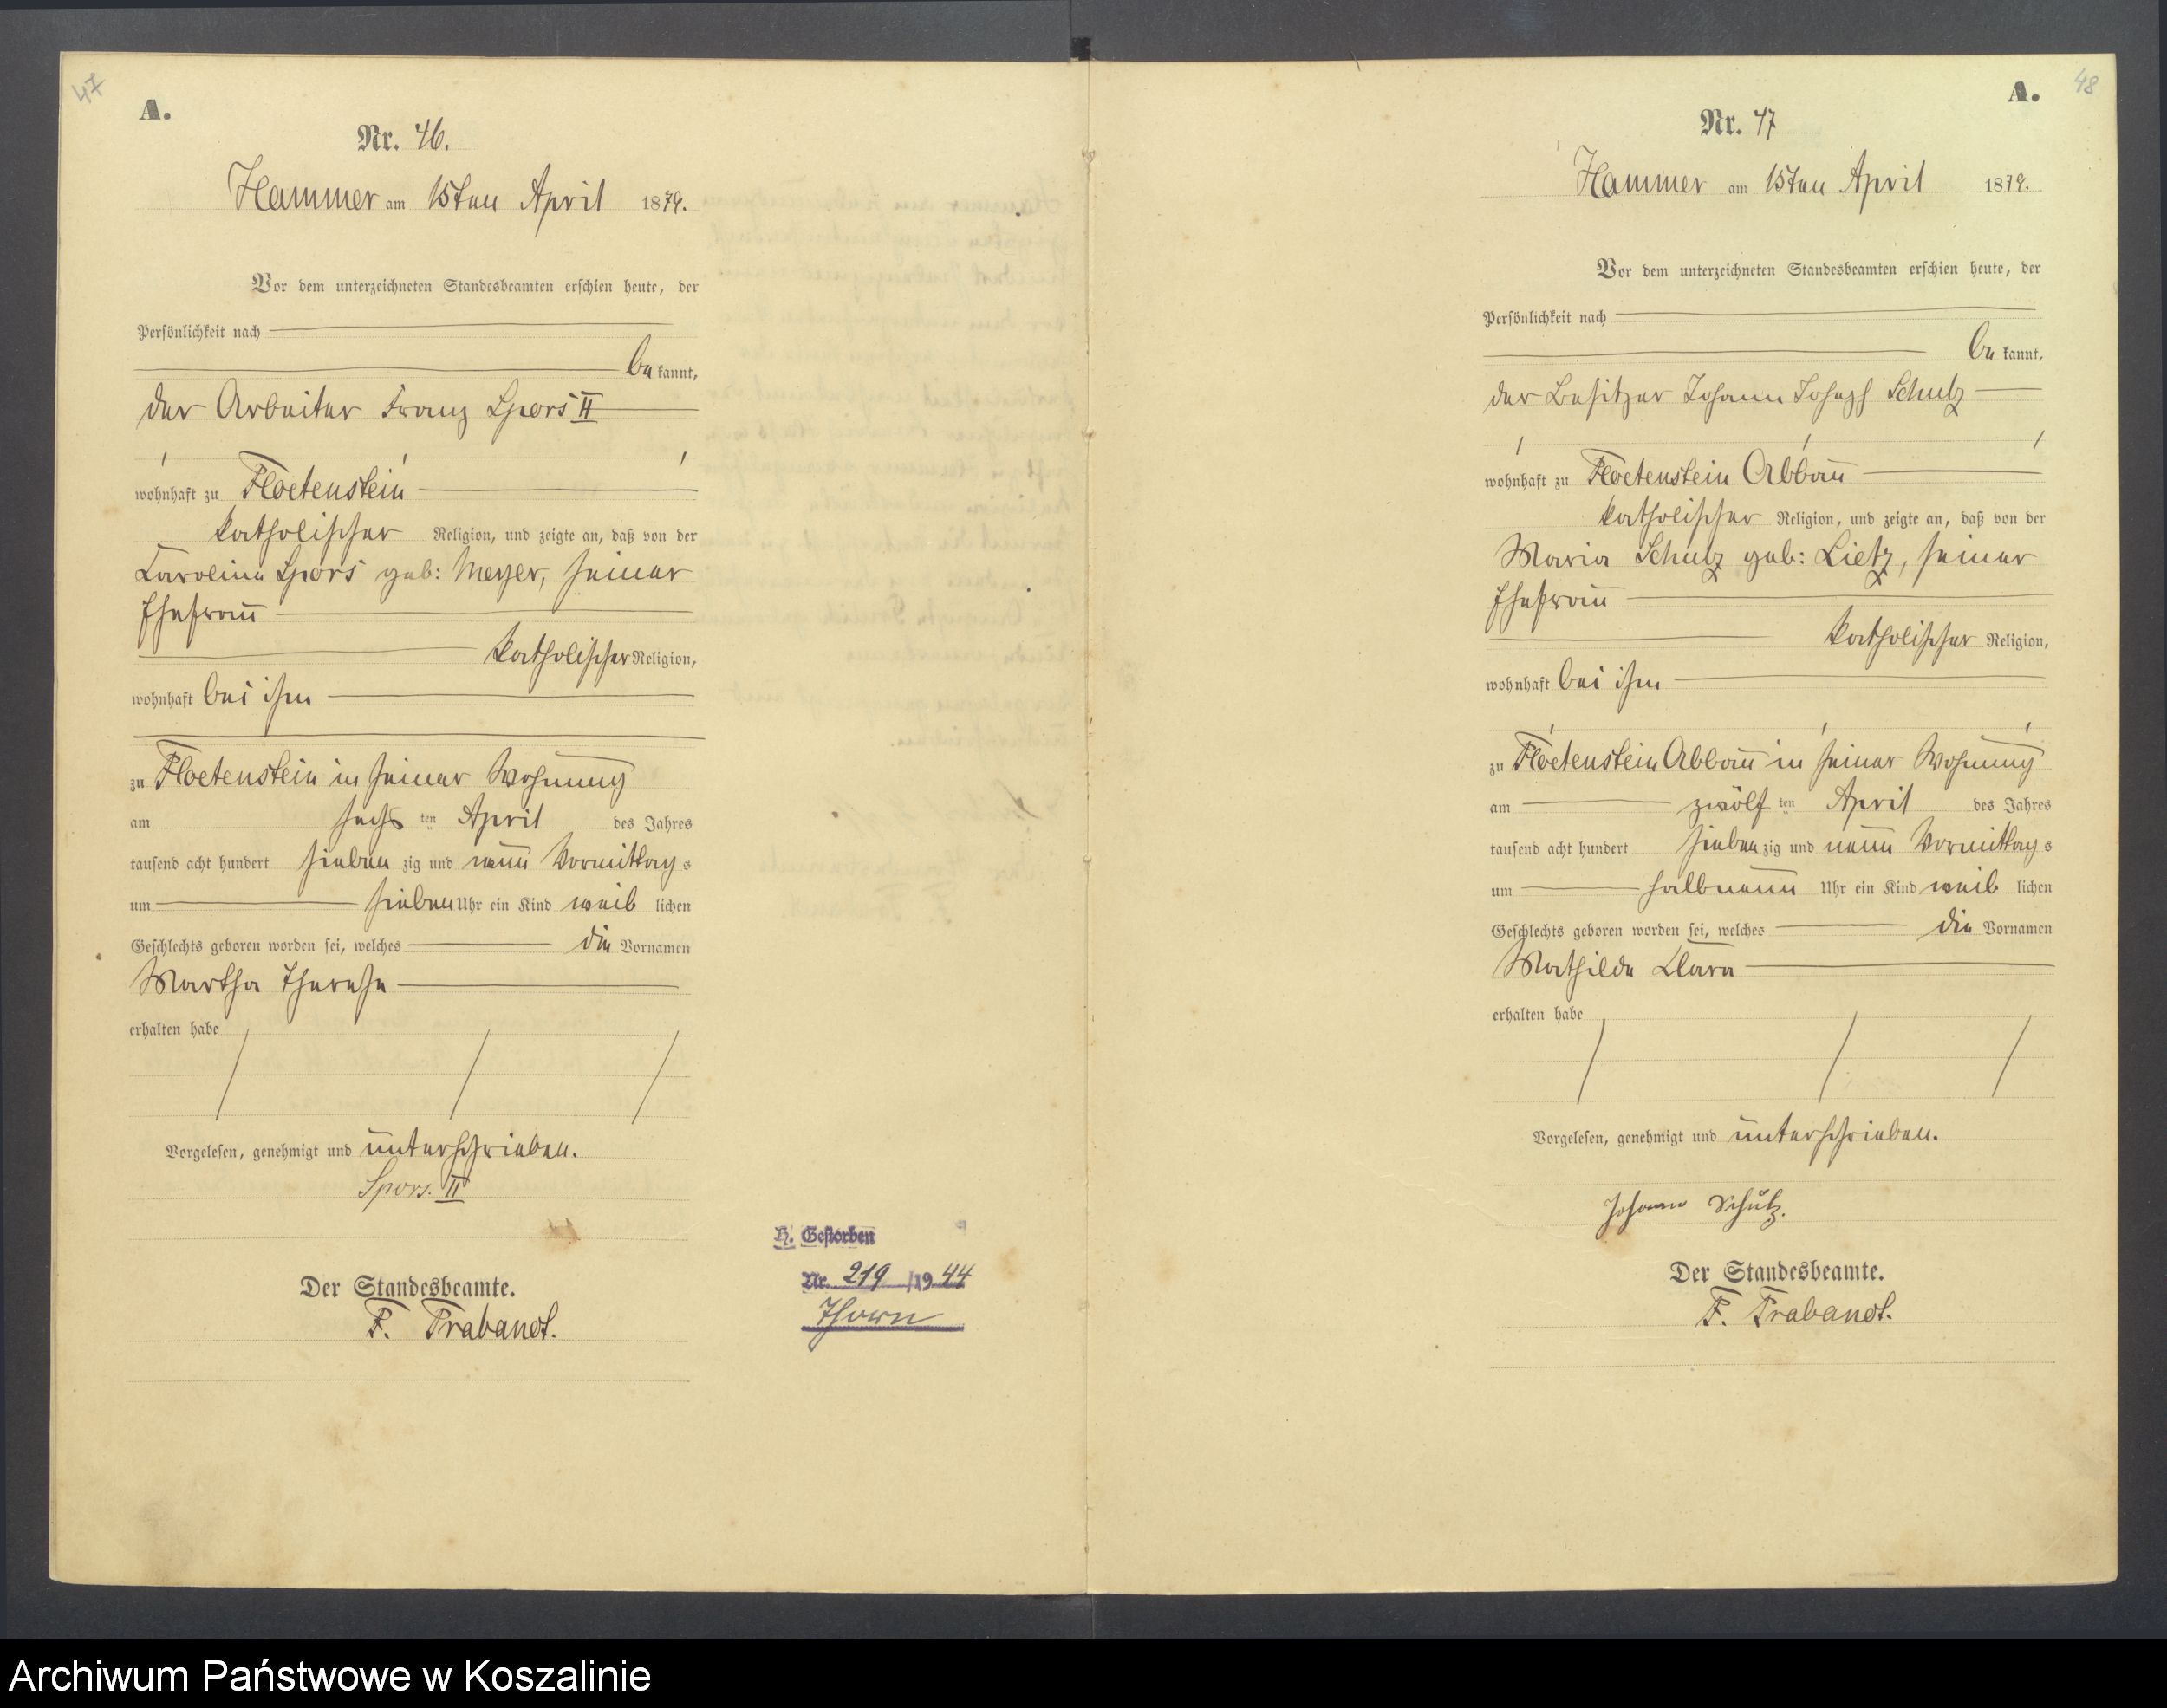 47
A.
Nr. 46.
Hammer am 15ten April 1879.
Vor dem unterzeichneten Standesbeamten erschien heute, der
Persönlichkeit nach
be kannt,
der Arbeiter Franz Spors II
wohnhaft zu Floetenstein
katholischer Religion, und zeigte an, daß von der
Caroline Spors geb: Meyer, seiner
Ehefrau
katholischer Religion,
wohnhaft bei ihm
zu Floetenstein in seiner Wohnung
am sechs ten April des Jahres
tausend acht hundert sieben zig und neun Vormittag s
um sieben Uhr ein Kind weib lichen
Geschlechts geboren worden sei, welches die Vornamen
Martha Therese
erhalten habe
Vorgelesen, genehmigt und unterschrieben.
Spors. II
Der Standesbeamte.
F. Trabandt.
H. Gestorben
Nr. 219 /1944
Thorn
48
A.
Nr. 47
Hammer am 15ten April 1879.
Vor dem unterzeichneten Standesbeamten erschien heute, der
Persönlichkeit nach
be kannt,
der Besitzer Johann Joseph Schulz
wohnhaft zu Floetenstein Abbau
katholischer Religion, und zeigte an, daß von der
Maria Schulz geb: Lietz, seiner
Ehefrau
katholischer Religion,
wohnhaft bei ihm
zu Floetenstein Abbau in seiner Wohnung
am zwölf ten April des Jahres
tausend acht hundert sieben zig und neun Vormittag s
um halbneun Uhr ein Kind weib lichen
Geschlechts geboren worden sei, welches die Vornamen
Mathilde Clara
erhalten habe
Vorgelesen, genehmigt und unterschrieben.
Johann Schulz.
Der Standesbeamte.
F. Trabandt.
Archiwum Państwowe w Koszalinie